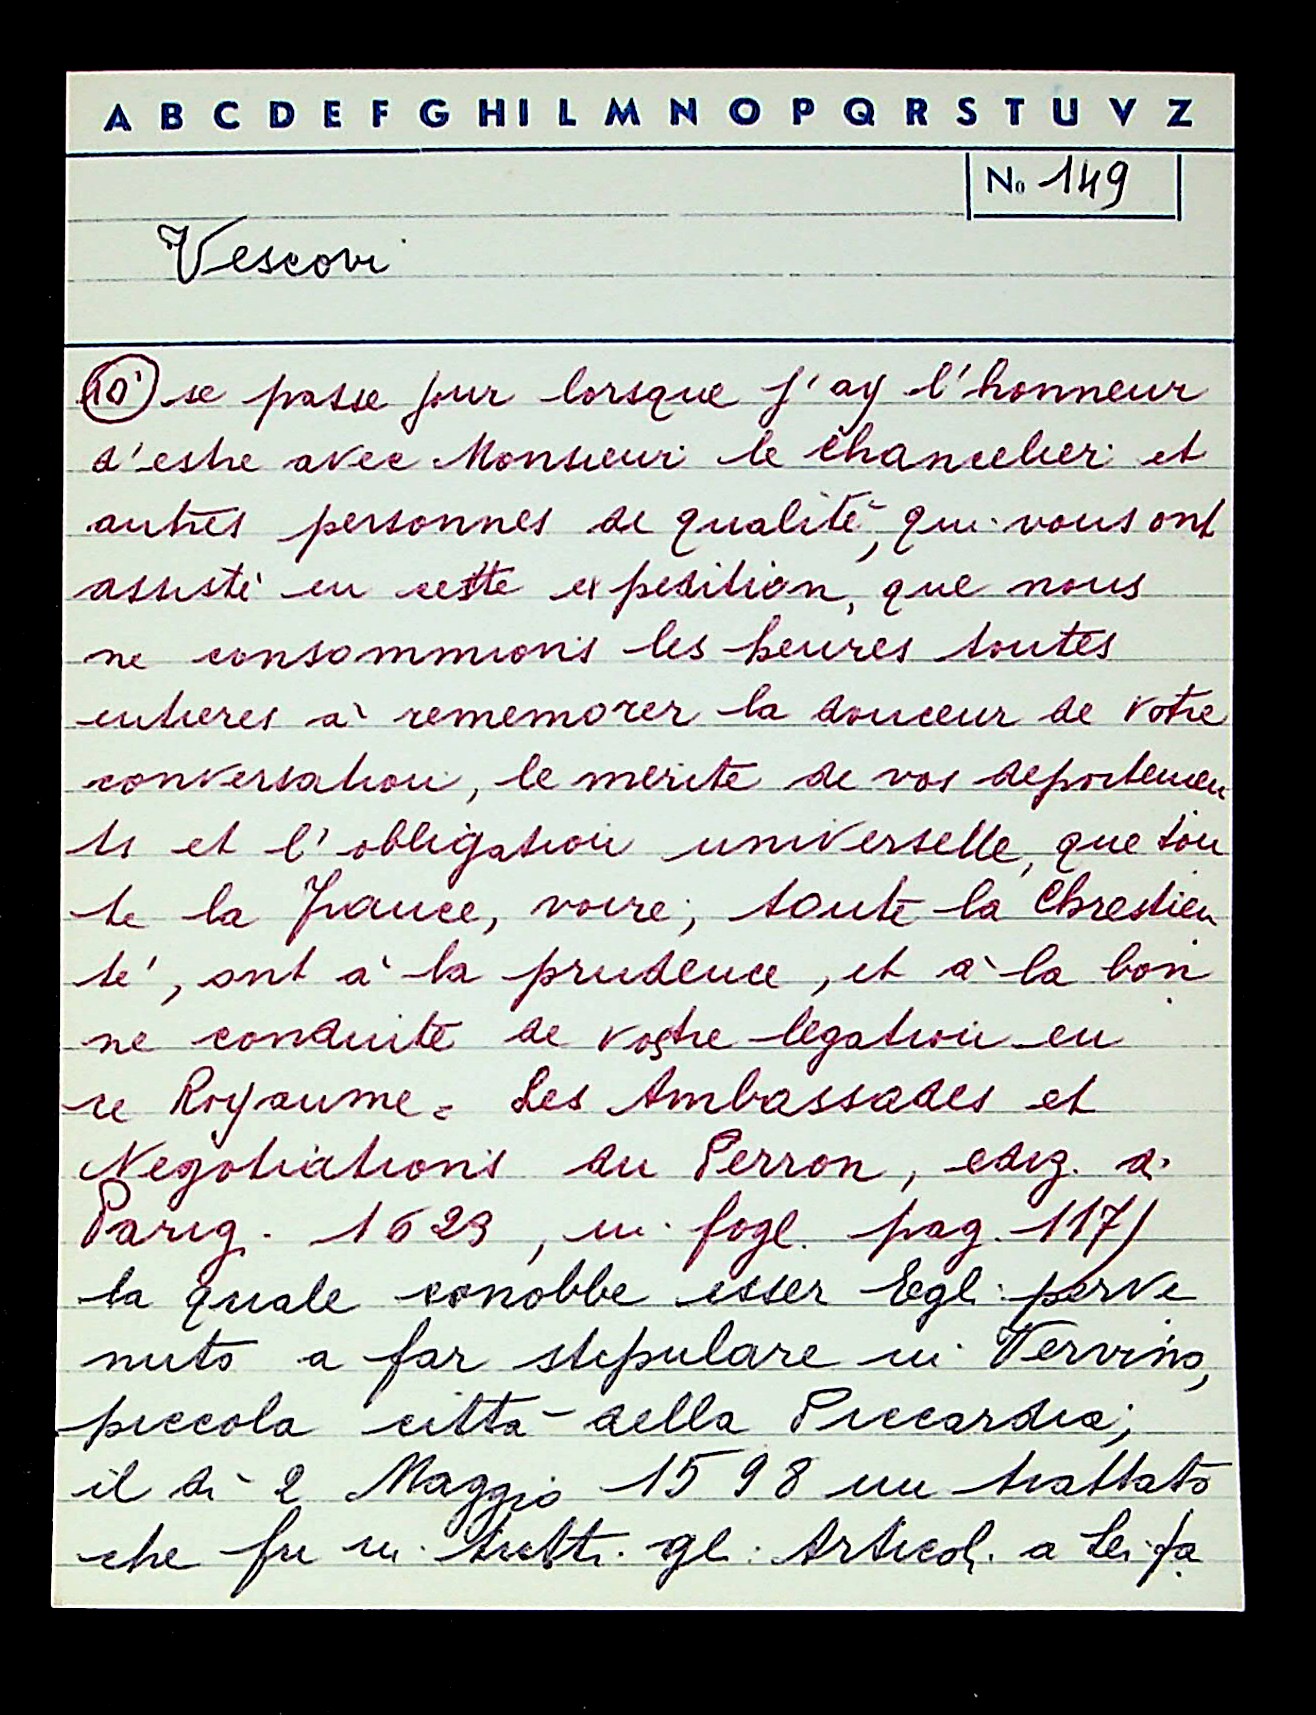 A B C D E F G H I L M N O P Q R S T U V Z
No 149
Vescovi
10) se passe jour lorsque j'ay l'honneur
d'estre avec Monsieur le Chancelier et
autres personnes de qualité, qui vous ont
assisté en cette expedition, que nous
ne consommions les heures toutes
entieres à rememorer la douceur de votre
conversation, le merite de vos deportemen
ts et l'obligation universelle, que tou
te la France, voire, toute la Chrestien
té, ont à la prudence, et à la bon
ne conduite de vostre legation en
ce Royaume. Les Ambassades et
Negotiations du Perron, ediz. di
Parig. 1623, in fogl. pag. 117)
la quale conobbe esser Egli perve
nuto a far stipulare in Vervino,
piccola città della Piccardia;
il dì 2 Maggio 1598 un trattato
che fu in tutti gli Articoli a Lei fa